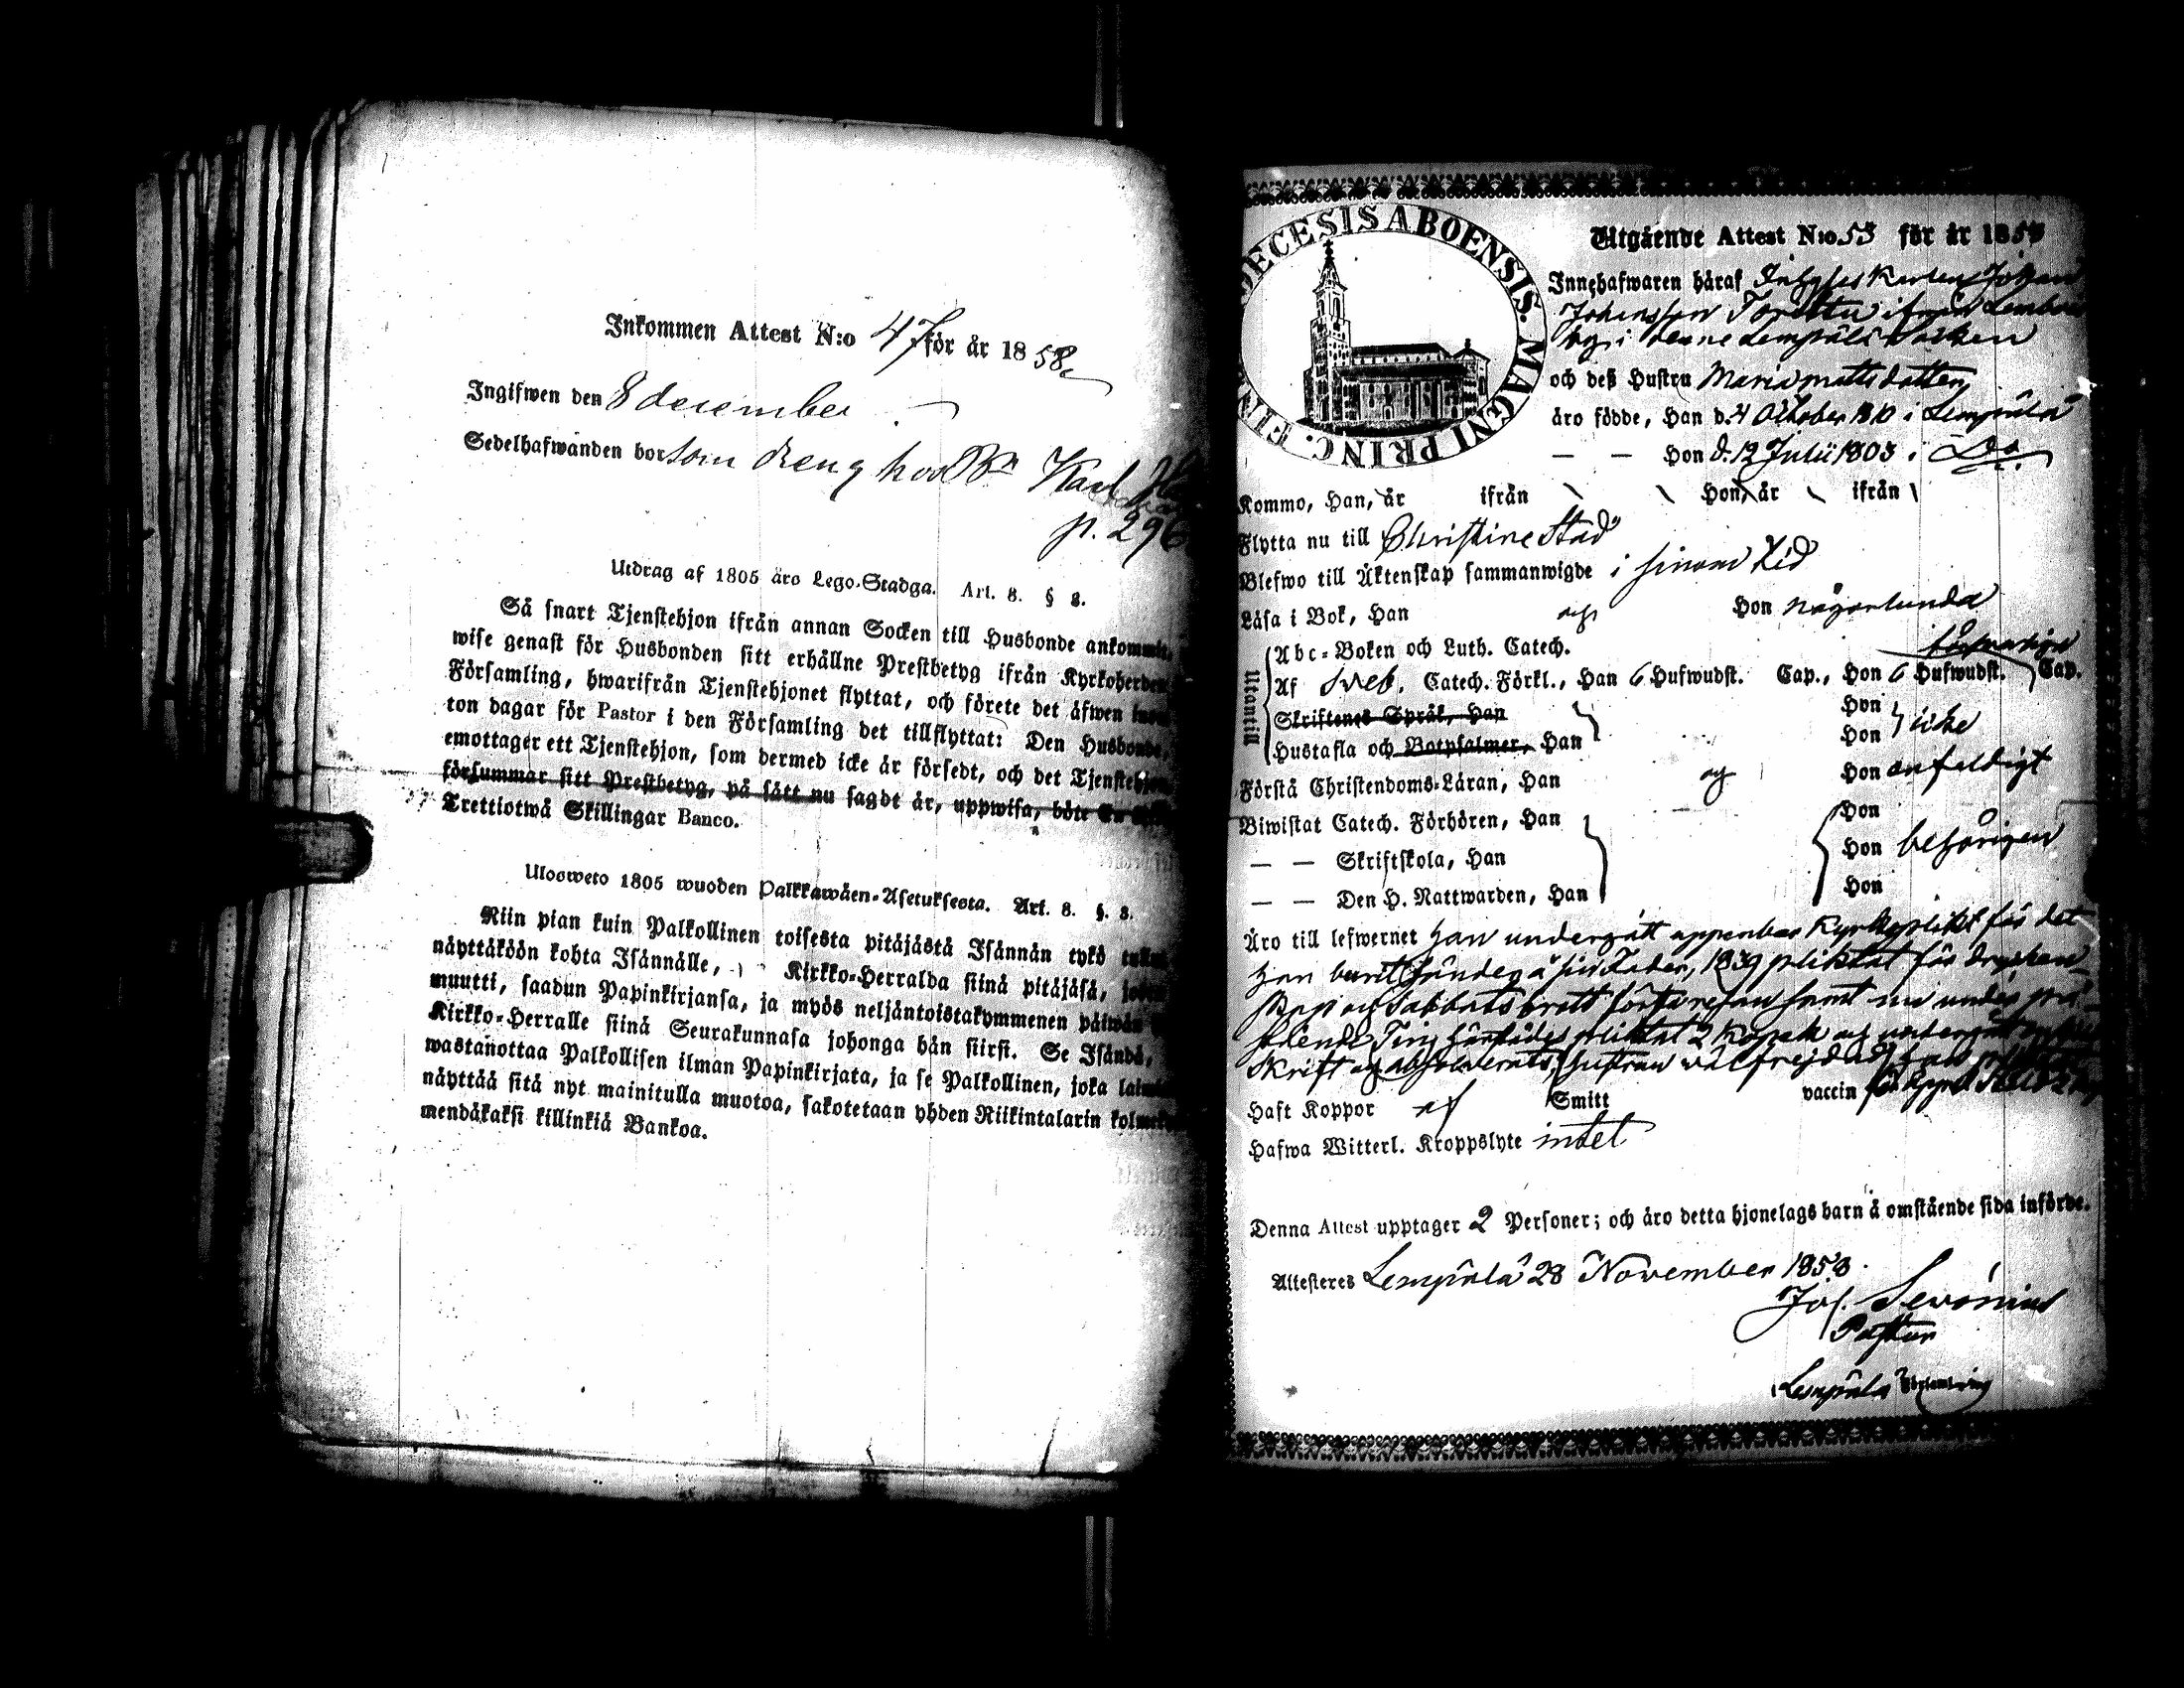 Inkommen Attest N:o 47 för år 1858
Ingifwen den 8 december
Sedelhafwanden bor som dreng hos Bn Karl
p. 296
Utdrag af 1805 års Lego-Stadga. Art. 8. § 8.
Så snart Tjenstehjon ifrån annan Socken till Husbonde ankommit,
wise genast för Husbonden sitt erhållne Prestbetyg ifrån Kyrkoherden
Församling, hwarifrån Tjenstehjonet flyttat, och förete det äfwen inom
ton dagar för Pastor i den Församling det tillflyttat: Den Husbonde,
emottager ett Tjenstehjon, som dermed icke är försedt, och det Tjenstehjon
försummar sitt Prestbetyg, på sätt nu sagdt är, uppwisa, böte En
Trettiotwå Skillingar Banco.
Ulosweto 1805 wuoden Palkkawäen-Asetuksesta. Art. 8. §. 8.
Niin pian kuin Palkollinen toisesta pitäjästä Isännän tykö
näyttäköön kohta Isännälle, Kirkko-Herralda siinä pitäjäsä,
muutti, saadun Papinkirjansa, ja myös neljäntoistakymmenen päiwän
Kirkko-Herralle siinä Seurakunnasa johonga hän siirsi. Se Isändä,
wastanottaa Palkollisen ilman Papinkirjata, ja se Palkollinen, joka
näyttää sitä nyt mainitulla muotoa, sakotetaan yhden Riikintalarin
mendäkaksi killinkiä Bankoa.
DIECESIS ABOENSIS. MAGNI PRINC. FIN
Utgående Attest N:o 53 för år 1858
Innehafwaren häraf Inhyses Karlen Johan
Johansson ifrån
by i denne Lempälä Socken
och deß Hustru Maria Mattsdotter
äro födde, Han d. 4 October 1810 i Lempälä
— — Hon d. 12 Julii 1803 i Do
Kommo, Han, år ifrån Hon, år ifrån
Flytta nu till Christinestad
Blefwo till Äktenskap sammanwigde i sinom tid
Läsa i Bok, Han och Hon någorlunda
Utantill
Abc-Boken och Luth. Catech.
Af Sveb. Catech. Förkl., Han 6 Hufwudst. Cap., Hon 6 Hufwudst. Cap.
Skriftenes Språk, Han Hon
Hustafla och Botpsalmer, Han Hon icke
Förstå Christendoms-Läran, Han og Hon enfaldigt
Biwistat Catech. Förhören, Han Hon
— — Skriftskola, Han Hon behörigen
— — Den H. Nattwarden, Han Hon
Äro till lefwernet han undergått uppenbar Kyrkoplikt för det
han burit händer å sin Fader, 1839 pliktat för dryckenskap
och Sabbatsbrott första resan samt nu under
stående Ting pliktat 2 kopek och undergått
skrift og absolverats, hustrun välfrejdad,
Haft Koppor af Smitt vaccin
Hafwa Witterl. Kroppslyte intet
Denna Attest upptager 2 Personer; och äro detta hjonelags barn å omstående sida införde.
Attesteres Lempälä 28 November 1858.
Jos. Sevonius
Pastor
Lempälä Församling